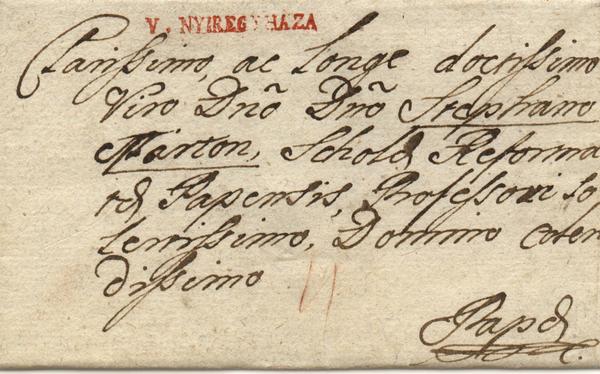 V. NYIREGYHAZA
Clarissimo, ac Longe doctissimo
Viro Dnō Dnō Stephano
Márton, Scholæ Reforma
tæ Papensis, Professori so
lertissimo, Domino colen
dissimo
Papæ